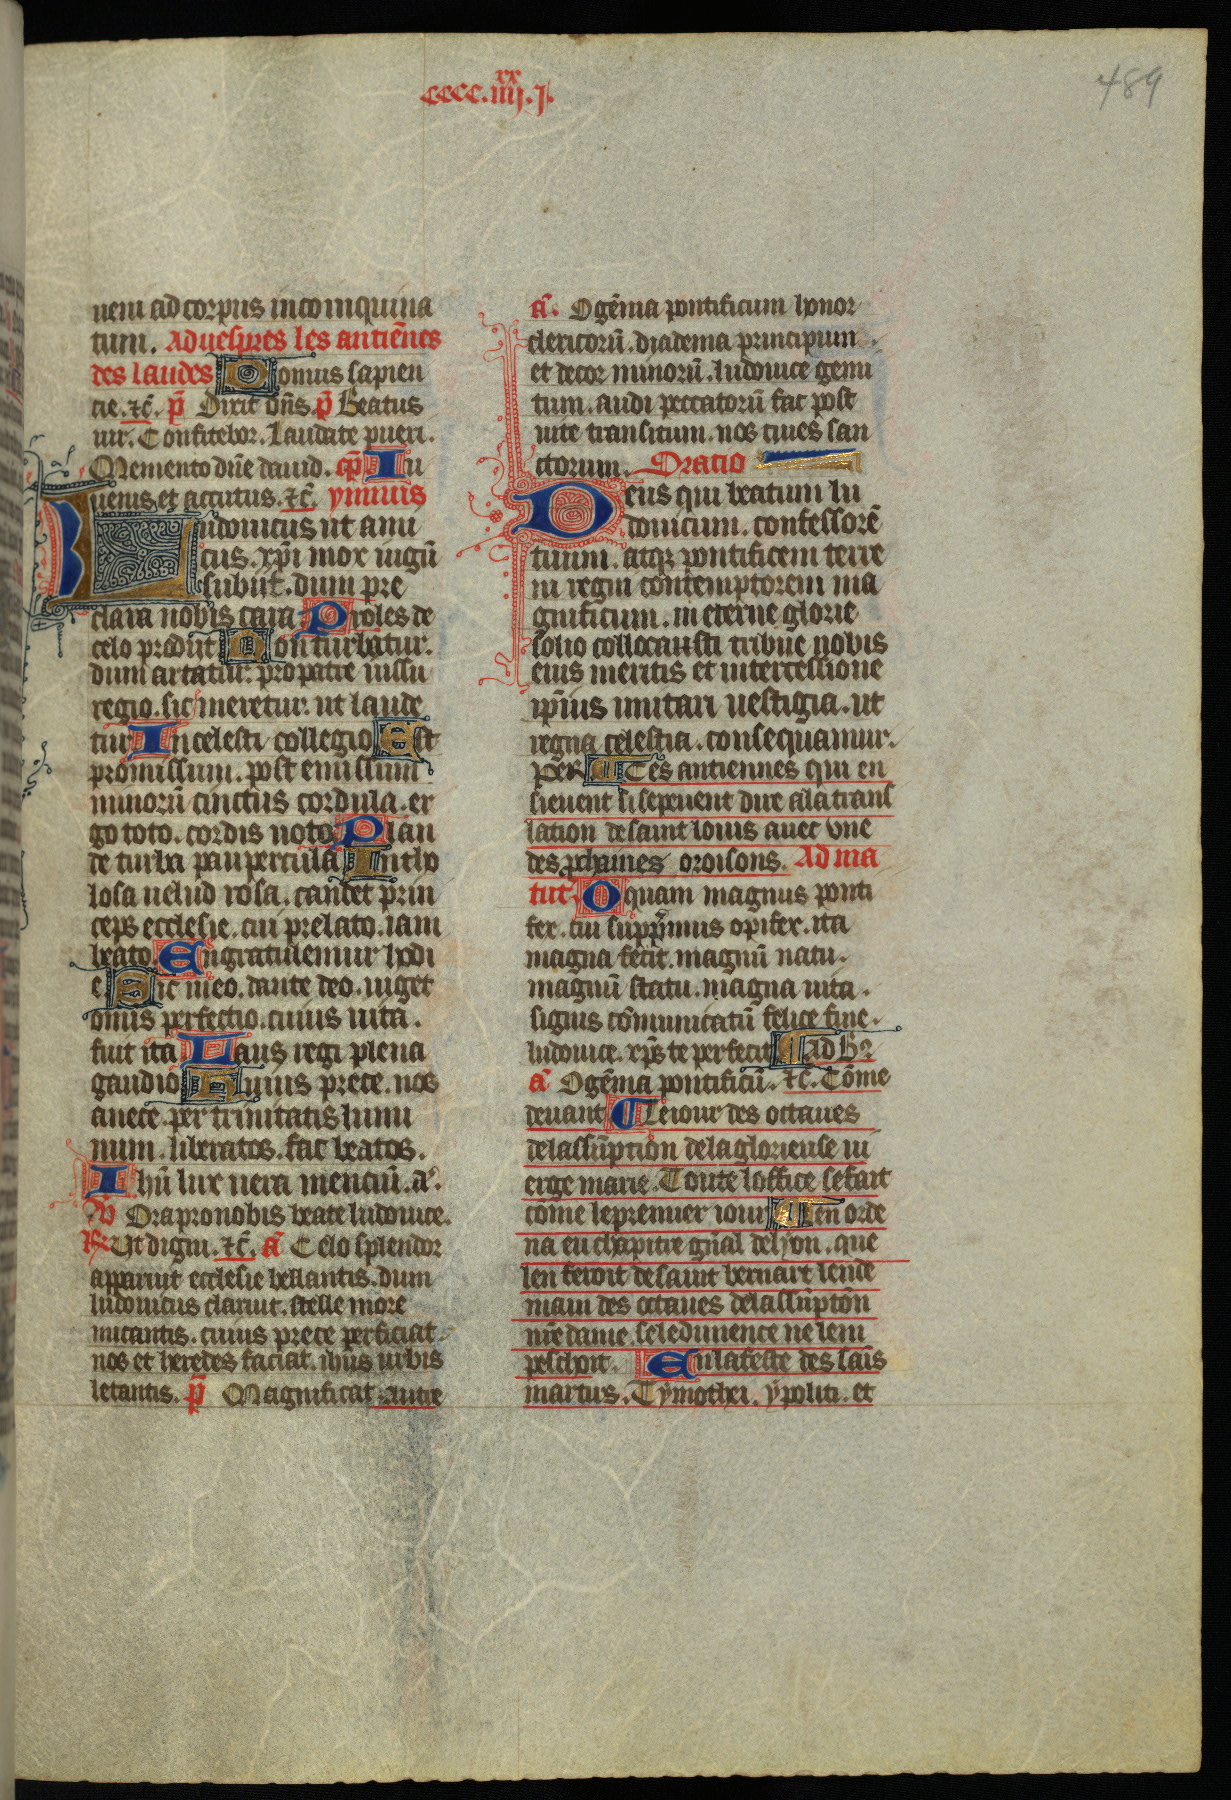 xx
cccc.iiij.j.
489
uem ad corpus incoinquina
tum. Ad uespres les antiēnes
des laudes Domus sapien
cie. ⁊c̄. p̄ Dixit dn̄s. p̄ Beatus
uir. Confitebor. Laudate pueri.
Memento dn̄e dauid. cp̄ In
uenis et accutus. ⁊c̄. ymnus
Ludouicus ut ami
cus. xp̄i mox iugū
subiit. dum pre
clara nobis cara Proles de
celo prodiit Non turbatur.
dum artatur. pro patre iussu
regio. sic meretur. ut laude
tur In celesti collegio Est
promissum. post emissum
minorū cinctus cordula. er
go toto. cordis uoto Plau
de turba paupercula Intho
losa uelud rosa. candet prin
ceps ecclesie. cui prelato. iam
beato. Congratulemur hodi
e. Sic in eo. dante deo. uiget
omis perfectio. cuius uita.
fuit ita Laus regi plena
gaudio Huius prece. nos
a nece. per trinitatis lumi
num. liberatos. fac beatos.
Ihū lux uera mencium. a.
V Ora pro nobis beate ludouice.
R Ut digni. ⁊c̄. ā Celo splendor
apparuit ecclesie bellantis. dum
ludouicus claruit. stelle more
micantis. cuius prece perficiat
nos et heredes faciat. ihūs urbis
letantis. p̄ Magnificat. autre
ā. O gēma pontificum honor
clericorū. dyadema principum.
et decor minorū. ludouice gemi
tum. audi peccatorū fac post
uite transitum. nos ciues san
ctorum. Oratio
Deus qui beatum lu
douicum. confessorē
tuum. atq; pontificem terre
ni regni contemptorem ma
gnificum. in eterne glorie
solio collocausti tribue nobis
eius meritis et intercessione
ip̄ius imitari uestigia. ut
regna celestia. consequamur.
Per Ces antiennes qui en
sieuent si sepeuent dire a la trans
lation de saint louis auec vne
des ꝓchaines oroisons. Ad ma
tut O quam magnus ponti
fex. cui suppᵒnimus opifex. ita
magna fecit. magnū natu.
magnū statu. magna uita.
signis cōmunicatū felice fine.
ludouice. xp̄s te perfecit ad B
ā O gēma pontificū. ⁊c̄. Cōme
deuant Le iour des octaues
de lassūption de la glorieuse ui
erge marie. Toute loffice se fait
cōme le premier iour Len orde
na eu chapitre gn̄al de lyon. que
len feroit de saint bernart lende
main des octaues de lassūptōn
nr̄e dame. se le dimence ne lem
peschoit. En la feste des sais̄
martirs. Tymothei. ypoliti. et